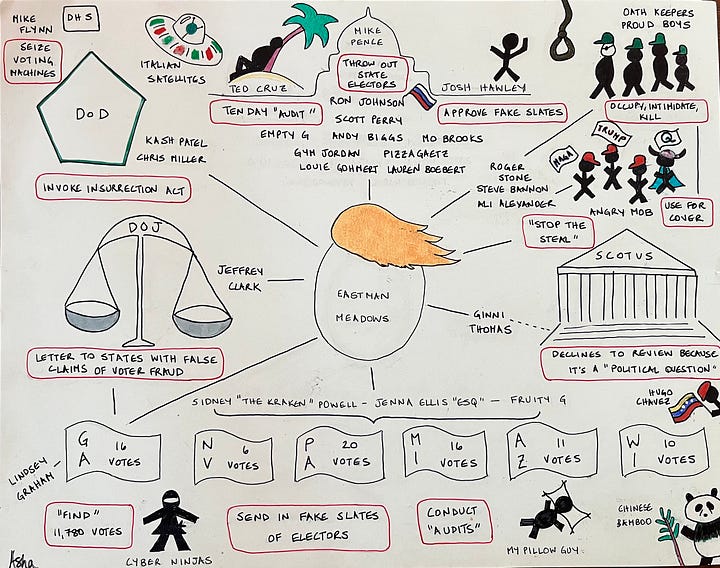 MIKE
FLYNN
DHS
SEIZE
VOTING
MACHINES
ITALIAN
SATELLITES
DoD
KASH PATEL
CHRIS MILLER
INVOKE INSURRECTION ACT
TED CRUZ
TEN DAY "AUDIT"
MIKE
PENCE
THROW OUT
STATE
ELECTORS
JOSH HAWLEY
APPROVE FAKE SLATES
RON JOHNSON
SCOTT PERRY
EMPTY G ANDY BIGGS MO BROOKS
GYM JORDAN PIZZAGAETZ
LOUIE GOHMERT LAUREN BOEBERT
OATH KEEPERS
PROUD BOYS
OCCUPY, INTIMIDATE,
KILL
MAGA
TRUMP
Q
ANGRY MOB
USE FOR
COVER
ROGER
STONE
STEVE BANNON
ALI ALEXANDER
"STOP THE
STEAL"
DOJ
JEFFREY
CLARK
LETTER TO STATES WITH FALSE
CLAIMS OF VOTER FRAUD
EASTMAN
MEADOWS
GINNI
THOMAS
SCOTUS
DECLINES TO REVIEW BECAUSE
IT'S A "POLITICAL QUESTION"
SIDNEY "THE KRAKEN" POWELL - JENNA ELLIS "ESQ" - FRUITY G
HUGO
CHAVEZ
LINDSEY
GRAHAM
GA 16 VOTES
NV 6 VOTES
PA 20 VOTES
MI 16 VOTES
AZ 11 VOTES
WI 10 VOTES
"FIND"
11,780 VOTES
CYBER NINJAS
SEND IN FAKE SLATES
OF ELECTORS
CONDUCT
"AUDITS"
MY PILLOW GUY
CHINESE
BAMBOO
Asha